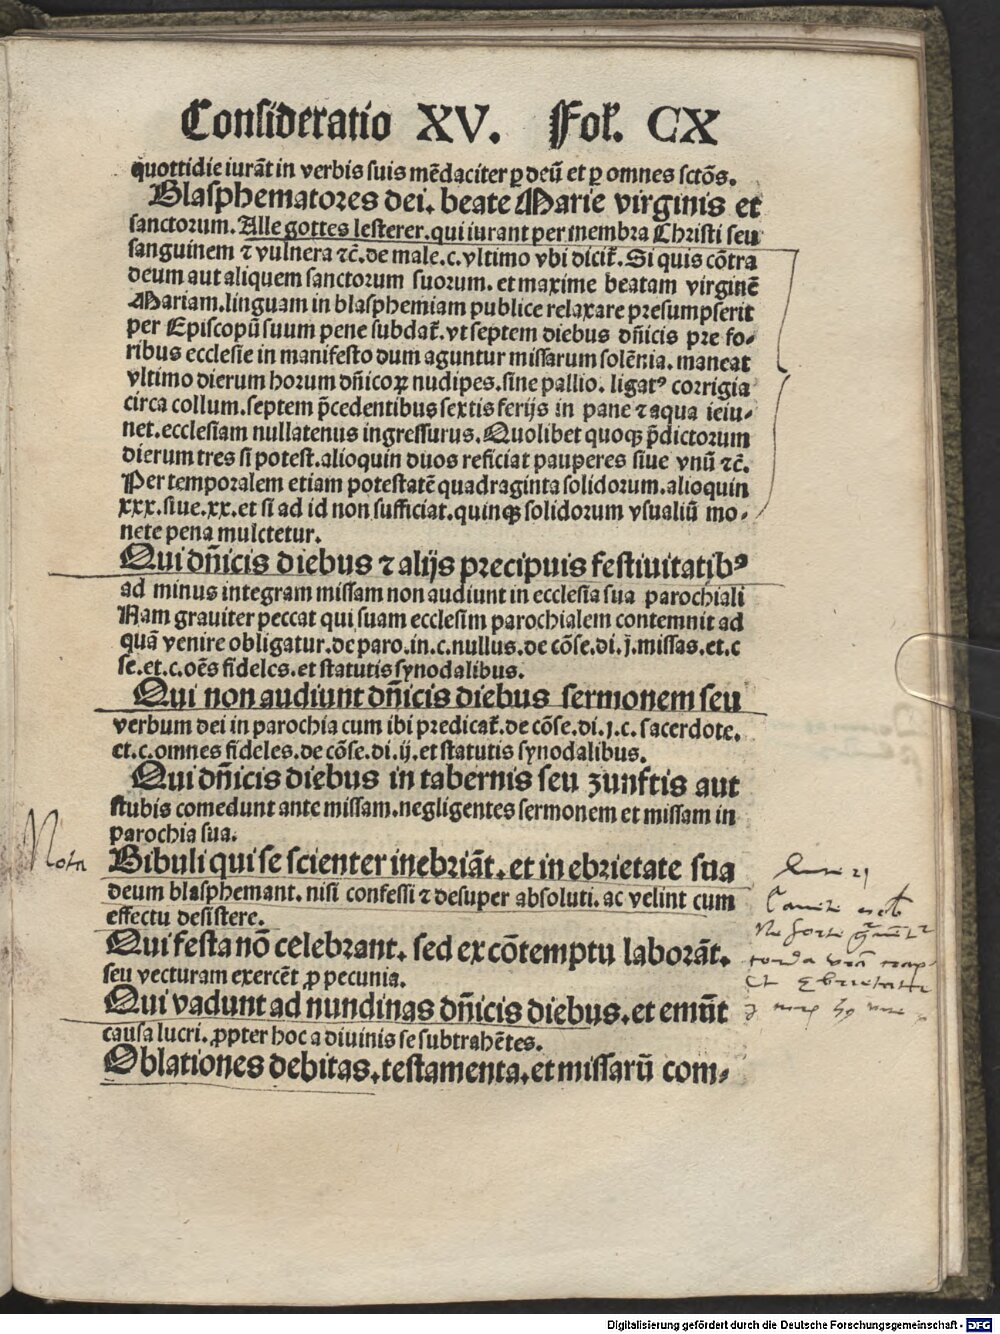 Consideratio XV. Fol. CX
quottidie iurāt in verbis suis mēdaciter ꝑ deū et ꝑ omnes sctōs.
Blasphematores dei. beate Marie virginis et
sanctorum. Alle gottes lesterer. qui iurant per membra Christi seu
sanguinem ⁊ vulnera ⁊c̄. de male. c. vltimo vbi dicit̄. Si quis cōtra
deum aut aliquem sanctorum suorum. et maxime beatam virginē
Mariam. linguam in blasphemiam publice relaxare presumpserit
per Episcopū suum pene subdat̄. vt septem diebus dn̄icis pre fo⸗
ribus ecclesie in manifesto dum aguntur missarum solēnia. maneat
vltimo dierum horum dn̄icoꝝ nudipes. sine pallio. ligatꝰ corrigia
circa collum. septem p̄cedentibus sextis ferijs in pane ⁊ aqua ieiu⸗
net. ecclesiam nullatenus ingressurus. Quolibet quoqꝫ p̄dictorum
dierum tres si potest. alioquin duos reficiat pauperes siue vnū ⁊c̄.
Per temporalem etiam potestatē quadraginta solidorum. alioquin
xxx. siue. xx. et si ad id non sufficiat. quinqꝫ solidorum vsualiū mo⸗
nete pena mulctetur.
Qui dn̄icis diebus ⁊ alijs precipuis festiuitatibꝰ
ad minus integram missam non audiunt in ecclesia sua parochiali
Nam grauiter peccat qui suam ecclesim parochialem contemnit ad
quā venire obligatur. de paro. in. c. nullus. de cōse. di. j. missas. et. c
se. et. c. oēs fideles. et statutis synodalibus.
Qui non audiunt dn̄icis diebus sermonem seu
verbum dei in parochia cum ibi predicat̄. de cōse. di. j. c. sacerdote.
et. c. omnes fideles. de cōse. di. ij. et statutis synodalibus.
Qui dn̄icis diebus in tabernis seu zunftis aut
stubis comedunt ante missam. negligentes sermonem et missam in
parochia sua.
Nota
Bibuli qui se scienter inebriāt. et in ebrietate sua
deum blasphemant. nisi confessi ⁊ desuper absoluti. ac velint cum
effectu desistere.
Qui festa nō celebrant. sed ex cōtemptu laborāt.
seu vecturam exercēt ꝓ pecunia.
Qui vadunt ad nundinas dn̄icis diebus. et emūt
causa lucri. ꝓpter hoc a diuinis se subtrahētes.
Oblationes debitas. testamenta. et missarū com⸗
Digitalisierung gefördert durch die Deutsche Forschungsgemeinschaft - DFG